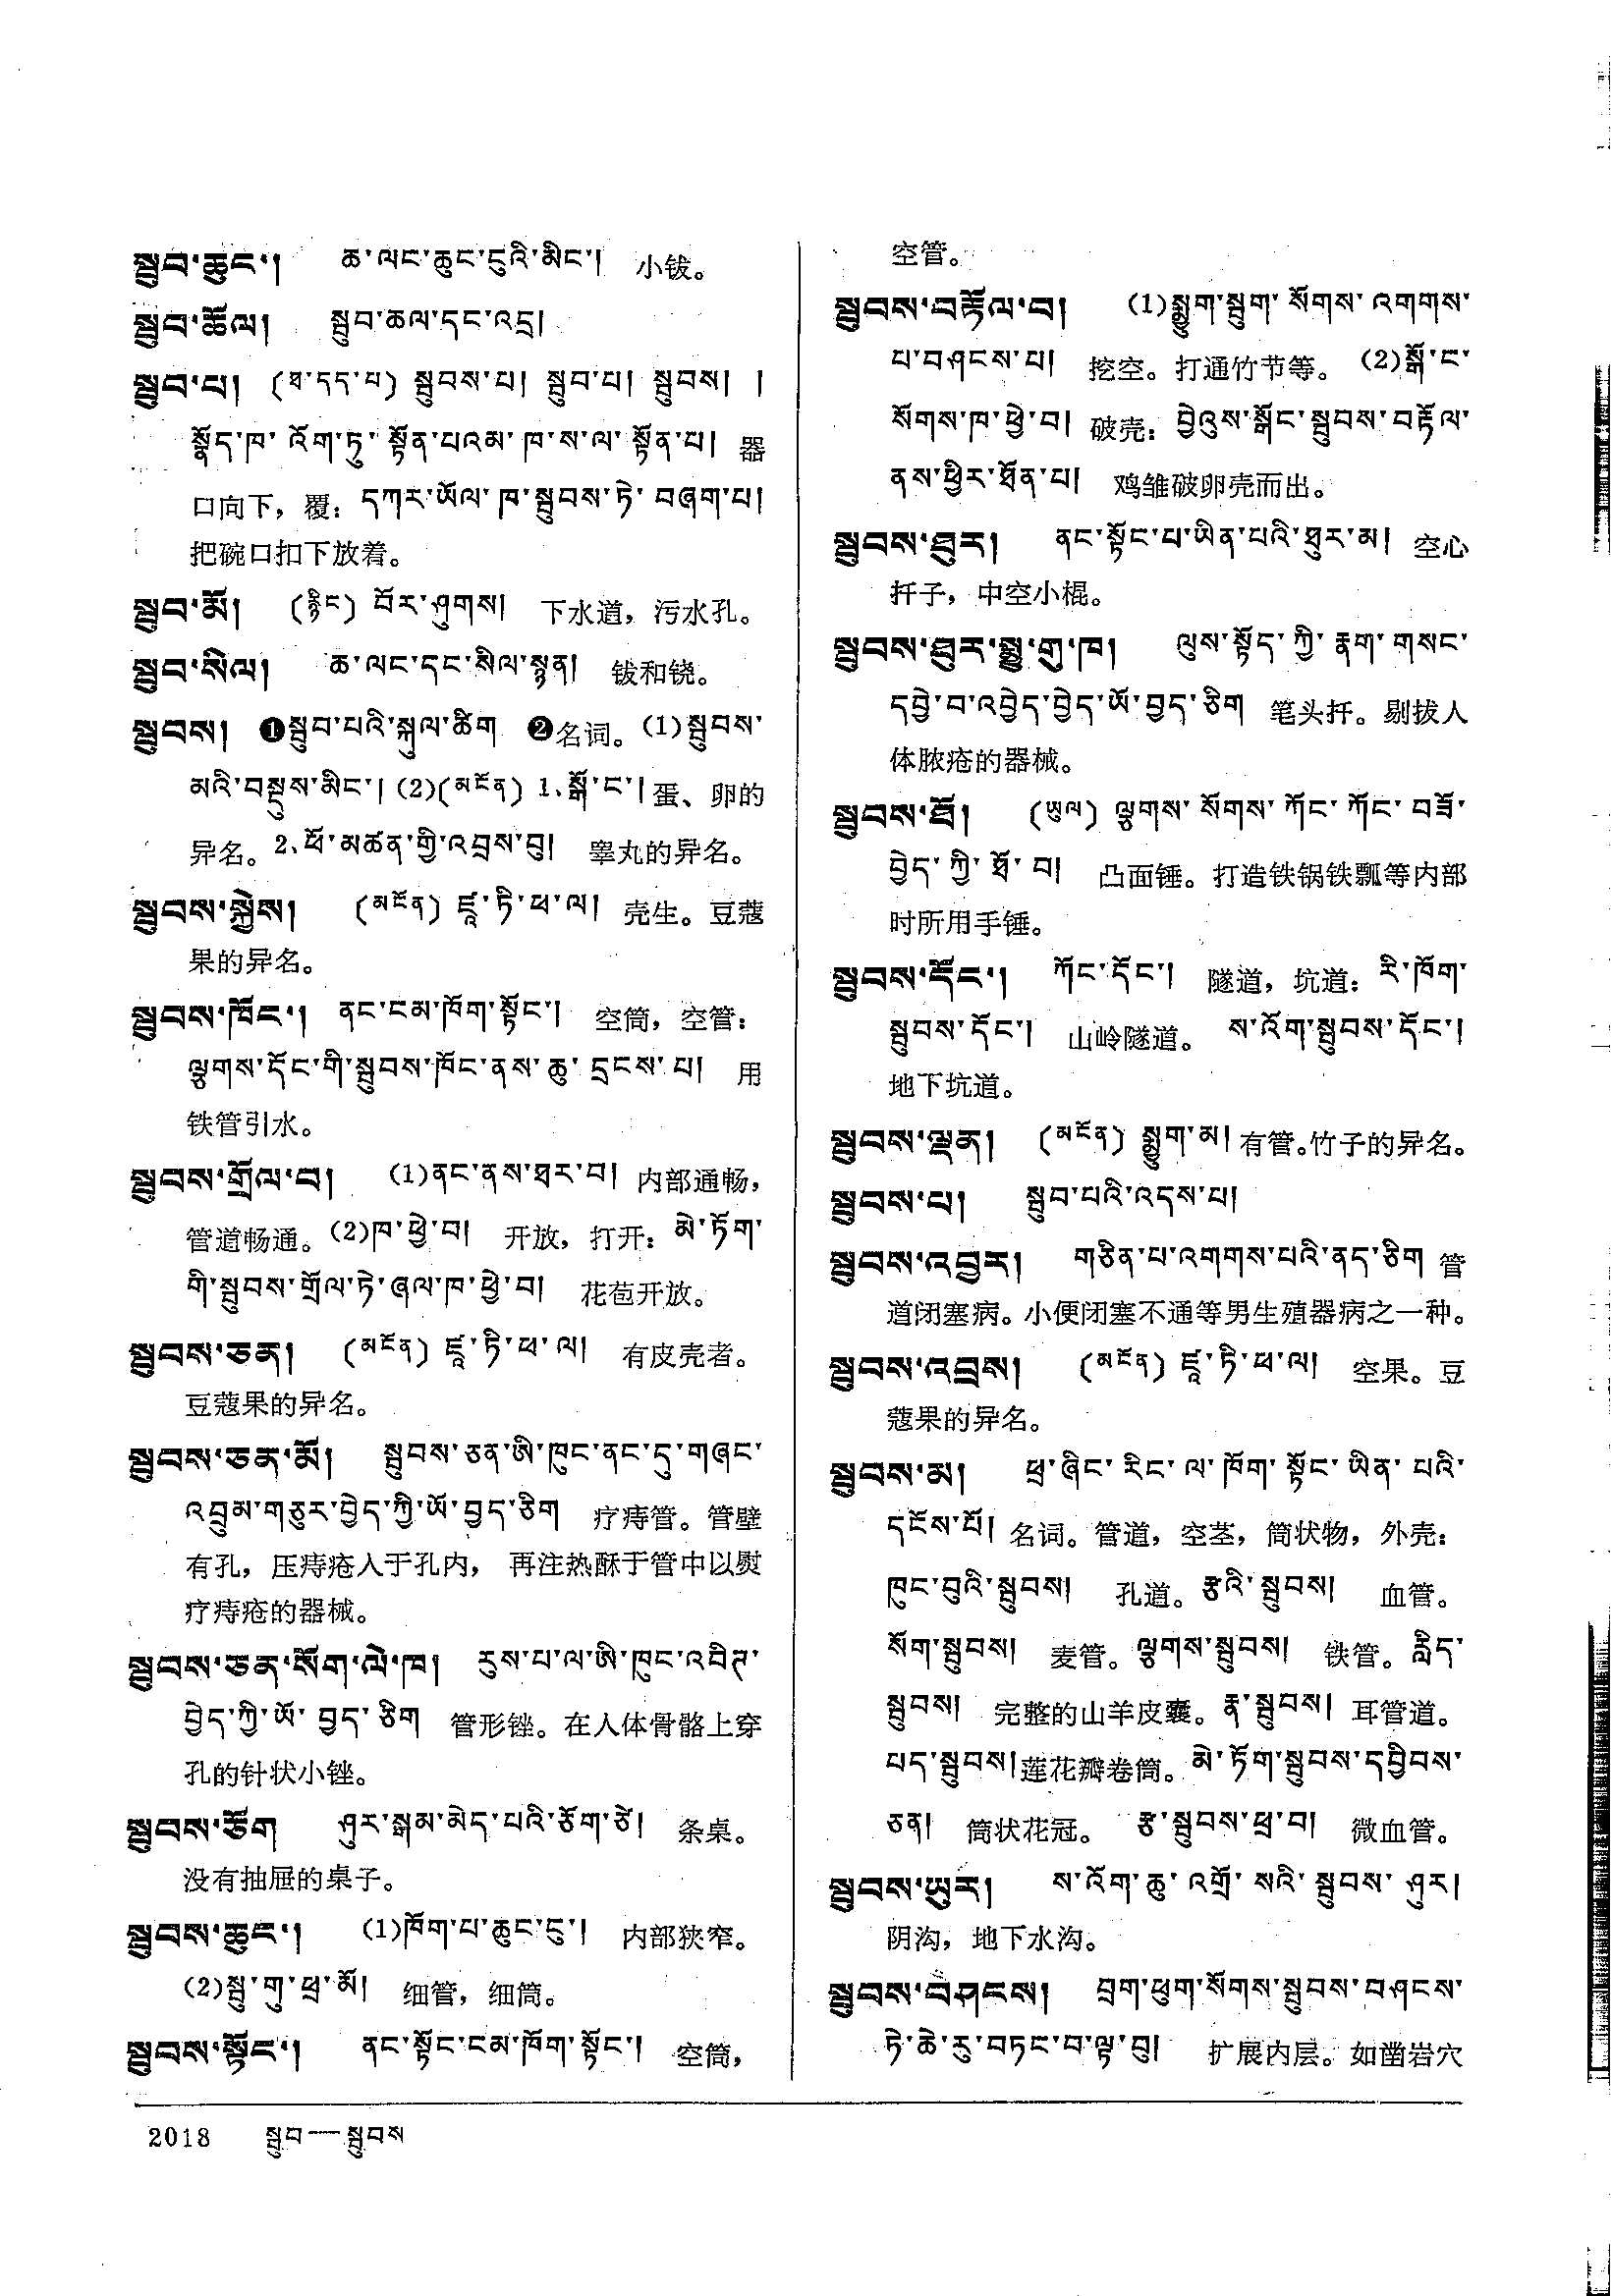 སྦུབ་ཆུང་། ཆ་ལང་ཆུང་ངུའི་མིང་། 小钹。
སྦུབ་ཆོལ། སྦུབ་ཆལ་དང་འདྲ།
སྦུབ་པ། (ཐ་དད་པ) སྦུབས་པ། སྦུབ་པ། སྦུབས། །
སྣོད་ཁ་འོག་ཏུ་སྟོན་པའམ་ཁ་ས་ལ་སྟོན་པ། 器
口向下，覆：དཀར་ཡོལ་ཁ་སྦུབས་ཏེ་བཞག་པ།
把碗口扣下放着。
སྦུབ་མོ། (རྙིང) བོར་ཤུགས། 下水道，污水孔。
སྦུབ་སིལ། ཆ་ལང་དང་སིལ་སྙན། 钹和铙。
སྦུབས། ❶སྦུབ་པའི་སྐུལ་ཚིག ❷名词。(1)སྦུབས་
མའི་བསྡུས་མིང་། (2)(མངོན) 1、སྒོ་ང་། 蛋、卵的
异名。2、ཕོ་མཚན་གྱི་འབྲས་བུ། 睾丸的异名。
སྦུབས་སྐྱེས། (མངོན) ཛཱ་ཏི་ཕ་ལ། 壳生。豆蔻
果的异名。
སྦུབས་ཁོང་། ནང་ངམ་ཁོག་སྟོང་། 空筒，空管：
ལྕགས་དོང་གི་སྦུབས་ཁོང་ནས་ཆུ་དྲངས་པ། 用
铁管引水。
སྦུབས་གྲོལ་བ། (1)ནང་ནས་ཐར་བ། 内部通畅，
管道畅通。(2)ཁ་ཕྱེ་བ། 开放，打开：མེ་ཏོག་
གི་སྦུབས་གྲོལ་ཏེ་ཞལ་ཁ་ཕྱེ་བ། 花苞开放。
སྦུབས་ཅན། (མངོན) ཛཱ་ཏི་ཕ་ལ། 有皮壳者。
豆蔻果的异名。
སྦུབས་ཅན་མོ། སྦུབས་ཅན་ཨི་ཁུང་ནང་དུ་གཞང་
འབྲུམ་གཅུར་བྱེད་ཀྱི་ཡོ་བྱད་ཅིག 疗痔管。管壁
有孔，压痔疮入于孔内， 再注热酥于管中以熨
疗痔疮的器械。
སྦུབས་ཅན་སོག་ལེ་ཁ། རུས་པ་ལ་ཨི་ཁུང་འབིཊ་
བྱེད་ཀྱི་ཡོ་བྱད་ཅིག 管形锉。在人体骨骼上穿
孔的针状小锉。
སྦུབས་ཅོག ཤུར་སྒམ་མེད་པའི་ཅོག་ཙེ། 条桌。
没有抽屉的桌子。
སྦུབས་ཆུང་། (1)ཁོག་པ་ཆུང་ངུ་། 内部狭窄。
(2)སྦུ་གུ་ཕྲ་མོ། 细管，细筒。
སྦུབས་སྟོང་། ནང་སྟོང་ངམ་ཁོག་སྟོང་། 空筒，
空管。
སྦུབས་བརྟོལ་བ། (1)སྨྱུག་སྦུག་སོགས་འགགས་
པ་བཤངས་པ། 挖空。打通竹节等。 (2)སྒོ་ང་
སོགས་ཁ་ཕྱེ་བ། 破壳：བྱེའུས་སྒོང་སྦུབས་བརྟོལ་
ནས་ཕྱིར་ཐོན་པ། 鸡雏破卵壳而出。
སྦུབས་ཐུར། ནང་སྟོང་པ་ཡིན་པའི་ཐུར་མ། 空心
扦子，中空小棍。
སྦུབས་ཐུར་སྨྱུ་གུ་ཁ། ལུས་སྟོད་ཀྱི་རྣག་གསང་
དབྱེ་བ་འབྱེད་བྱེད་ཡོ་བྱད་ཅིག 笔头扦。剔拔人
体脓疮的器械。
སྦུབས་ཐོ། (ཡུལ) ལྕགས་སོགས་ཀོང་ཀོང་བཟོ་
བྱེད་ཀྱི་ཐོ་བ། 凸面锤。打造铁锅铁瓢等内部
时所用手锤。
སྦུབས་དོང་། ཀོང་དོང་། 隧道，坑道：རི་ཁོག་
སྦུབས་དོང་། 山岭隧道。 ས་འོག་སྦུབས་དོང་།
地下坑道。
སྦུབས་ལྡན། (མངོན) སྨྱུག་མ། 有管。竹子的异名。
སྦུབས་པ། སྦུབ་པའི་འདས་པ།
སྦུབས་འབྱར། གཅིན་པ་འགགས་པའི་ནད་ཅིག 管
道闭塞病。小便闭塞不通等男生殖器病之一种。
སྦུབས་འབྲས། (མངོན) ཛཱ་ཏི་ཕ་ལ། 空果。豆
蔻果的异名。
སྦུབས་མ། ཕྲ་ཞིང་རིང་ལ་ཁོག་སྟོང་ཡིན་པའི་
དངོས་པོ། 名词。管道，空茎，筒状物，外壳：
ཁུང་བུའི་སྦུབས། 孔道。རྩའི་སྦུབས། 血管。
སོག་སྦུབས། 麦管。ལྕགས་སྦུབས། 铁管。རླིད་
སྦུབས། 完整的山羊皮囊。རྣ་སྦུབས། 耳管道。
པད་སྦུབས། 莲花瓣卷筒。མེ་ཏོག་སྦུབས་དབྱིབས་
ཅན། 筒状花冠。 རྩ་སྦུབས་ཕྲ་བ། 微血管。
སྦུབས་ཡུར། ས་འོག་ཆུ་འགྲོ་སའི་སྦུབས་ཤུར།
阴沟，地下水沟。
སྦུབས་བཤངས། བྲག་ཕུག་སོགས་སྦུབས་བཤངས་
ཏེ་ཆེ་རུ་བཏང་བ་ལྟ་བུ། 扩展内层。如凿岩穴
2018 སྦུབ—སྦུབས